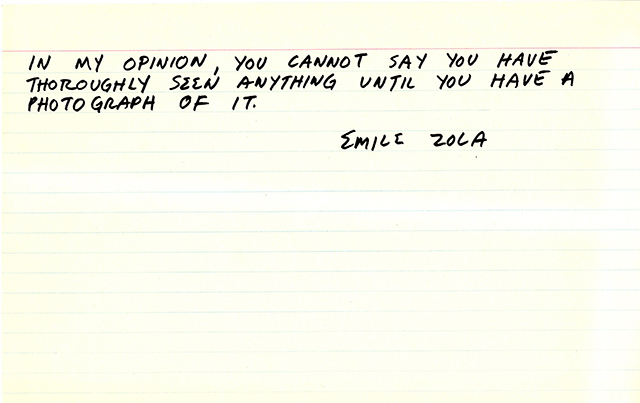 IN MY OPINION, YOU CANNOT SAY YOU HAVE
THOROUGHLY SEEN ANYTHING UNTIL YOU HAVE A
PHOTOGRAPH OF IT.
EMILE ZOLA